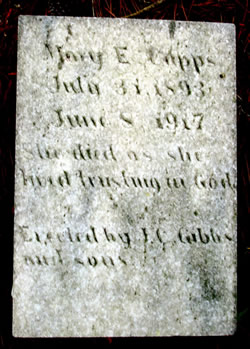 Mary E. Capps
July 31, 1893
June 8, 1917
She died as she
lived trusting in God.
Erected by J. C. Gibbs
and sons